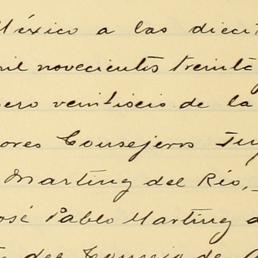 México a las dieci
mil novecientos treinta
ero veintiseis de la
ores Consejeros Ing
Martínez del Río,
José Pablo Martínez d
del Consejo de